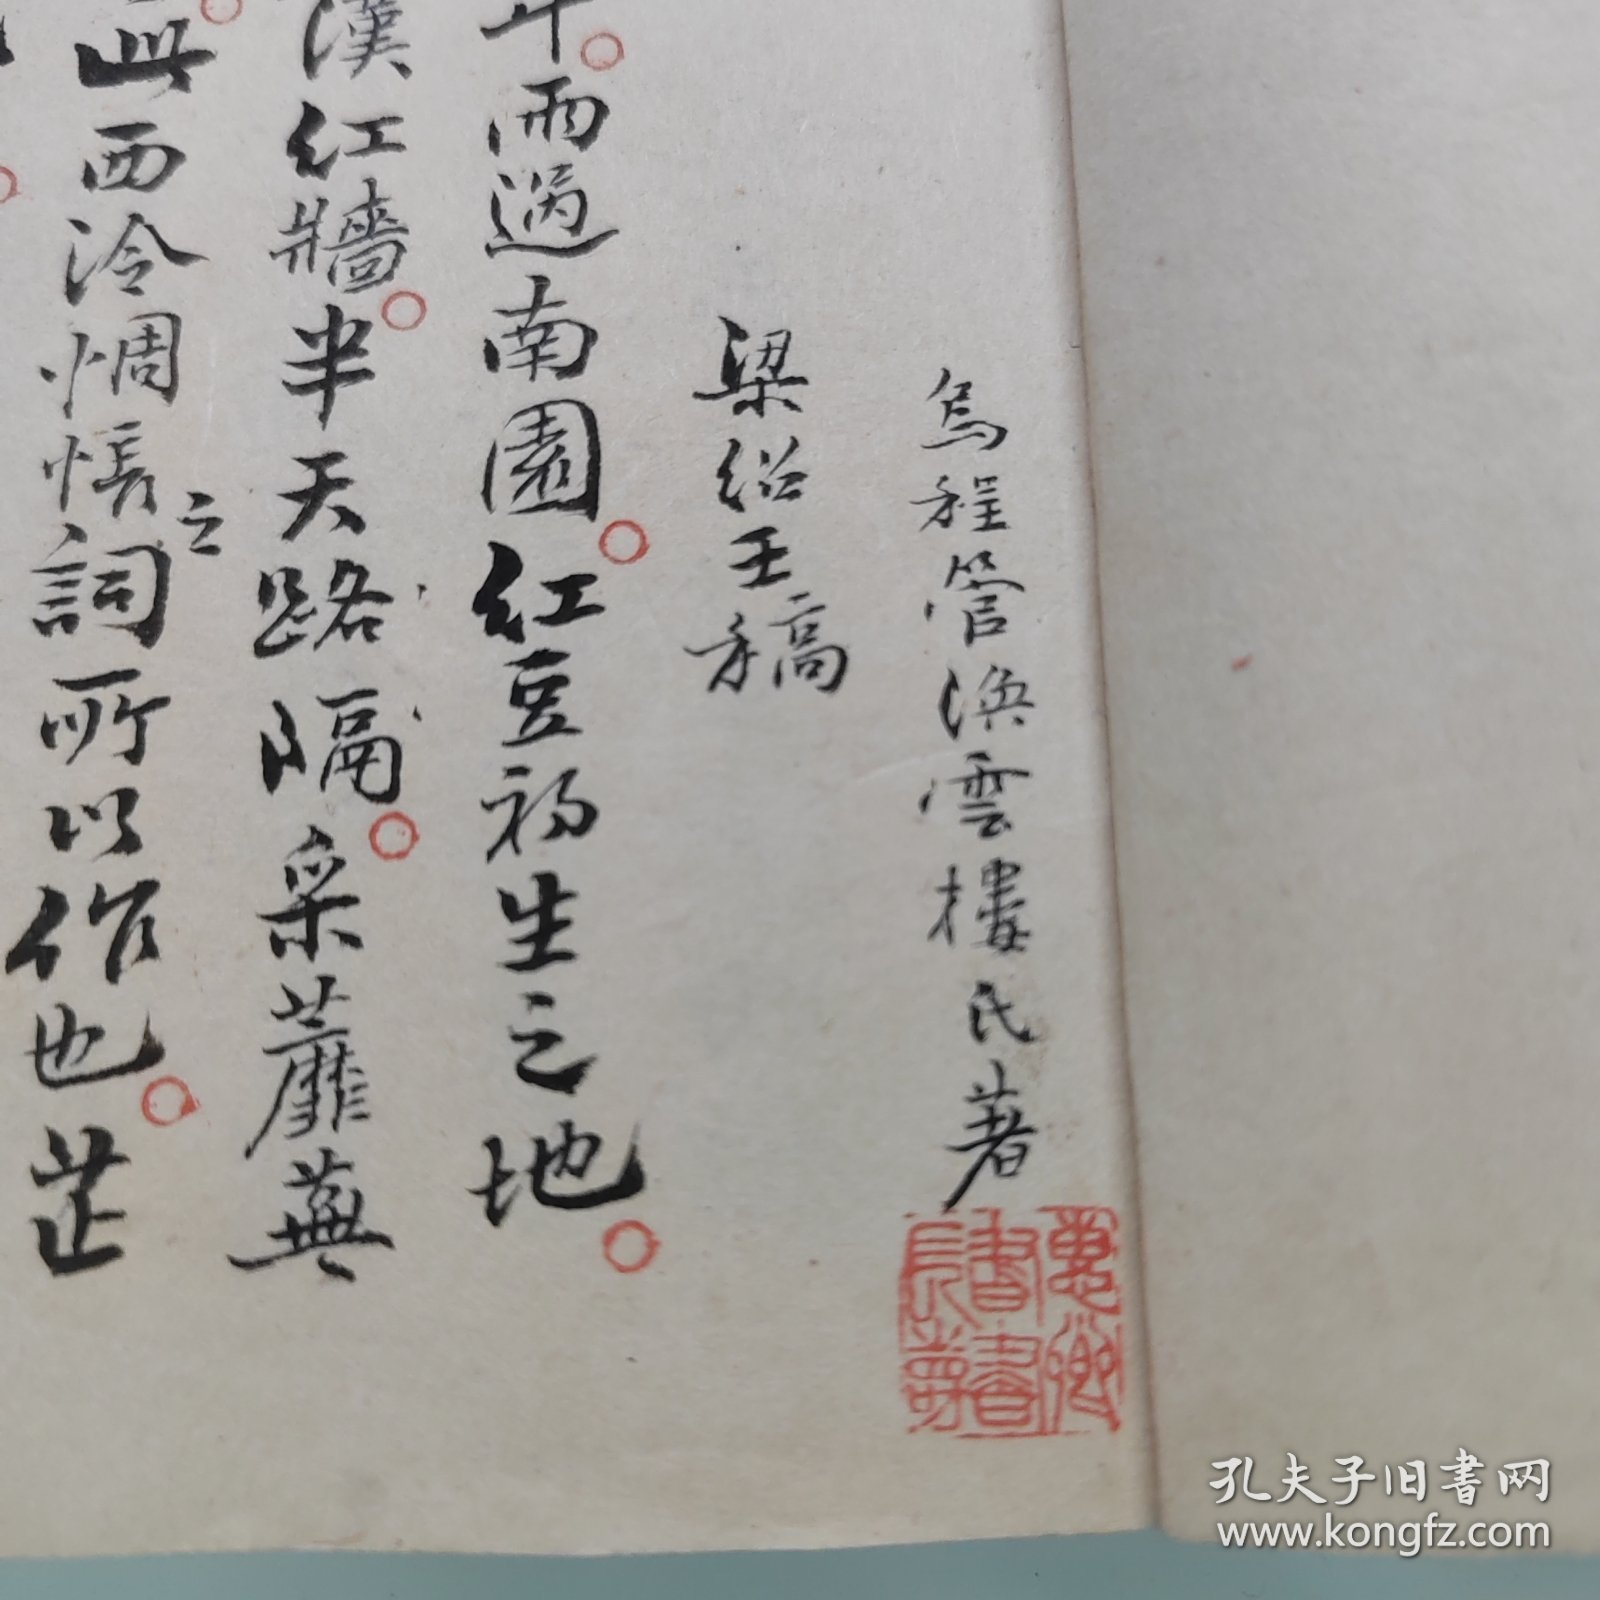 烏程管渙雲樓氏著
梁紹王稿
雨過南園紅豆初生之地
漢紅牆半天路隔采蘼蕪
此西泠惆悵之詞所以作也芷
孔夫子旧书网
www.kongfz.com